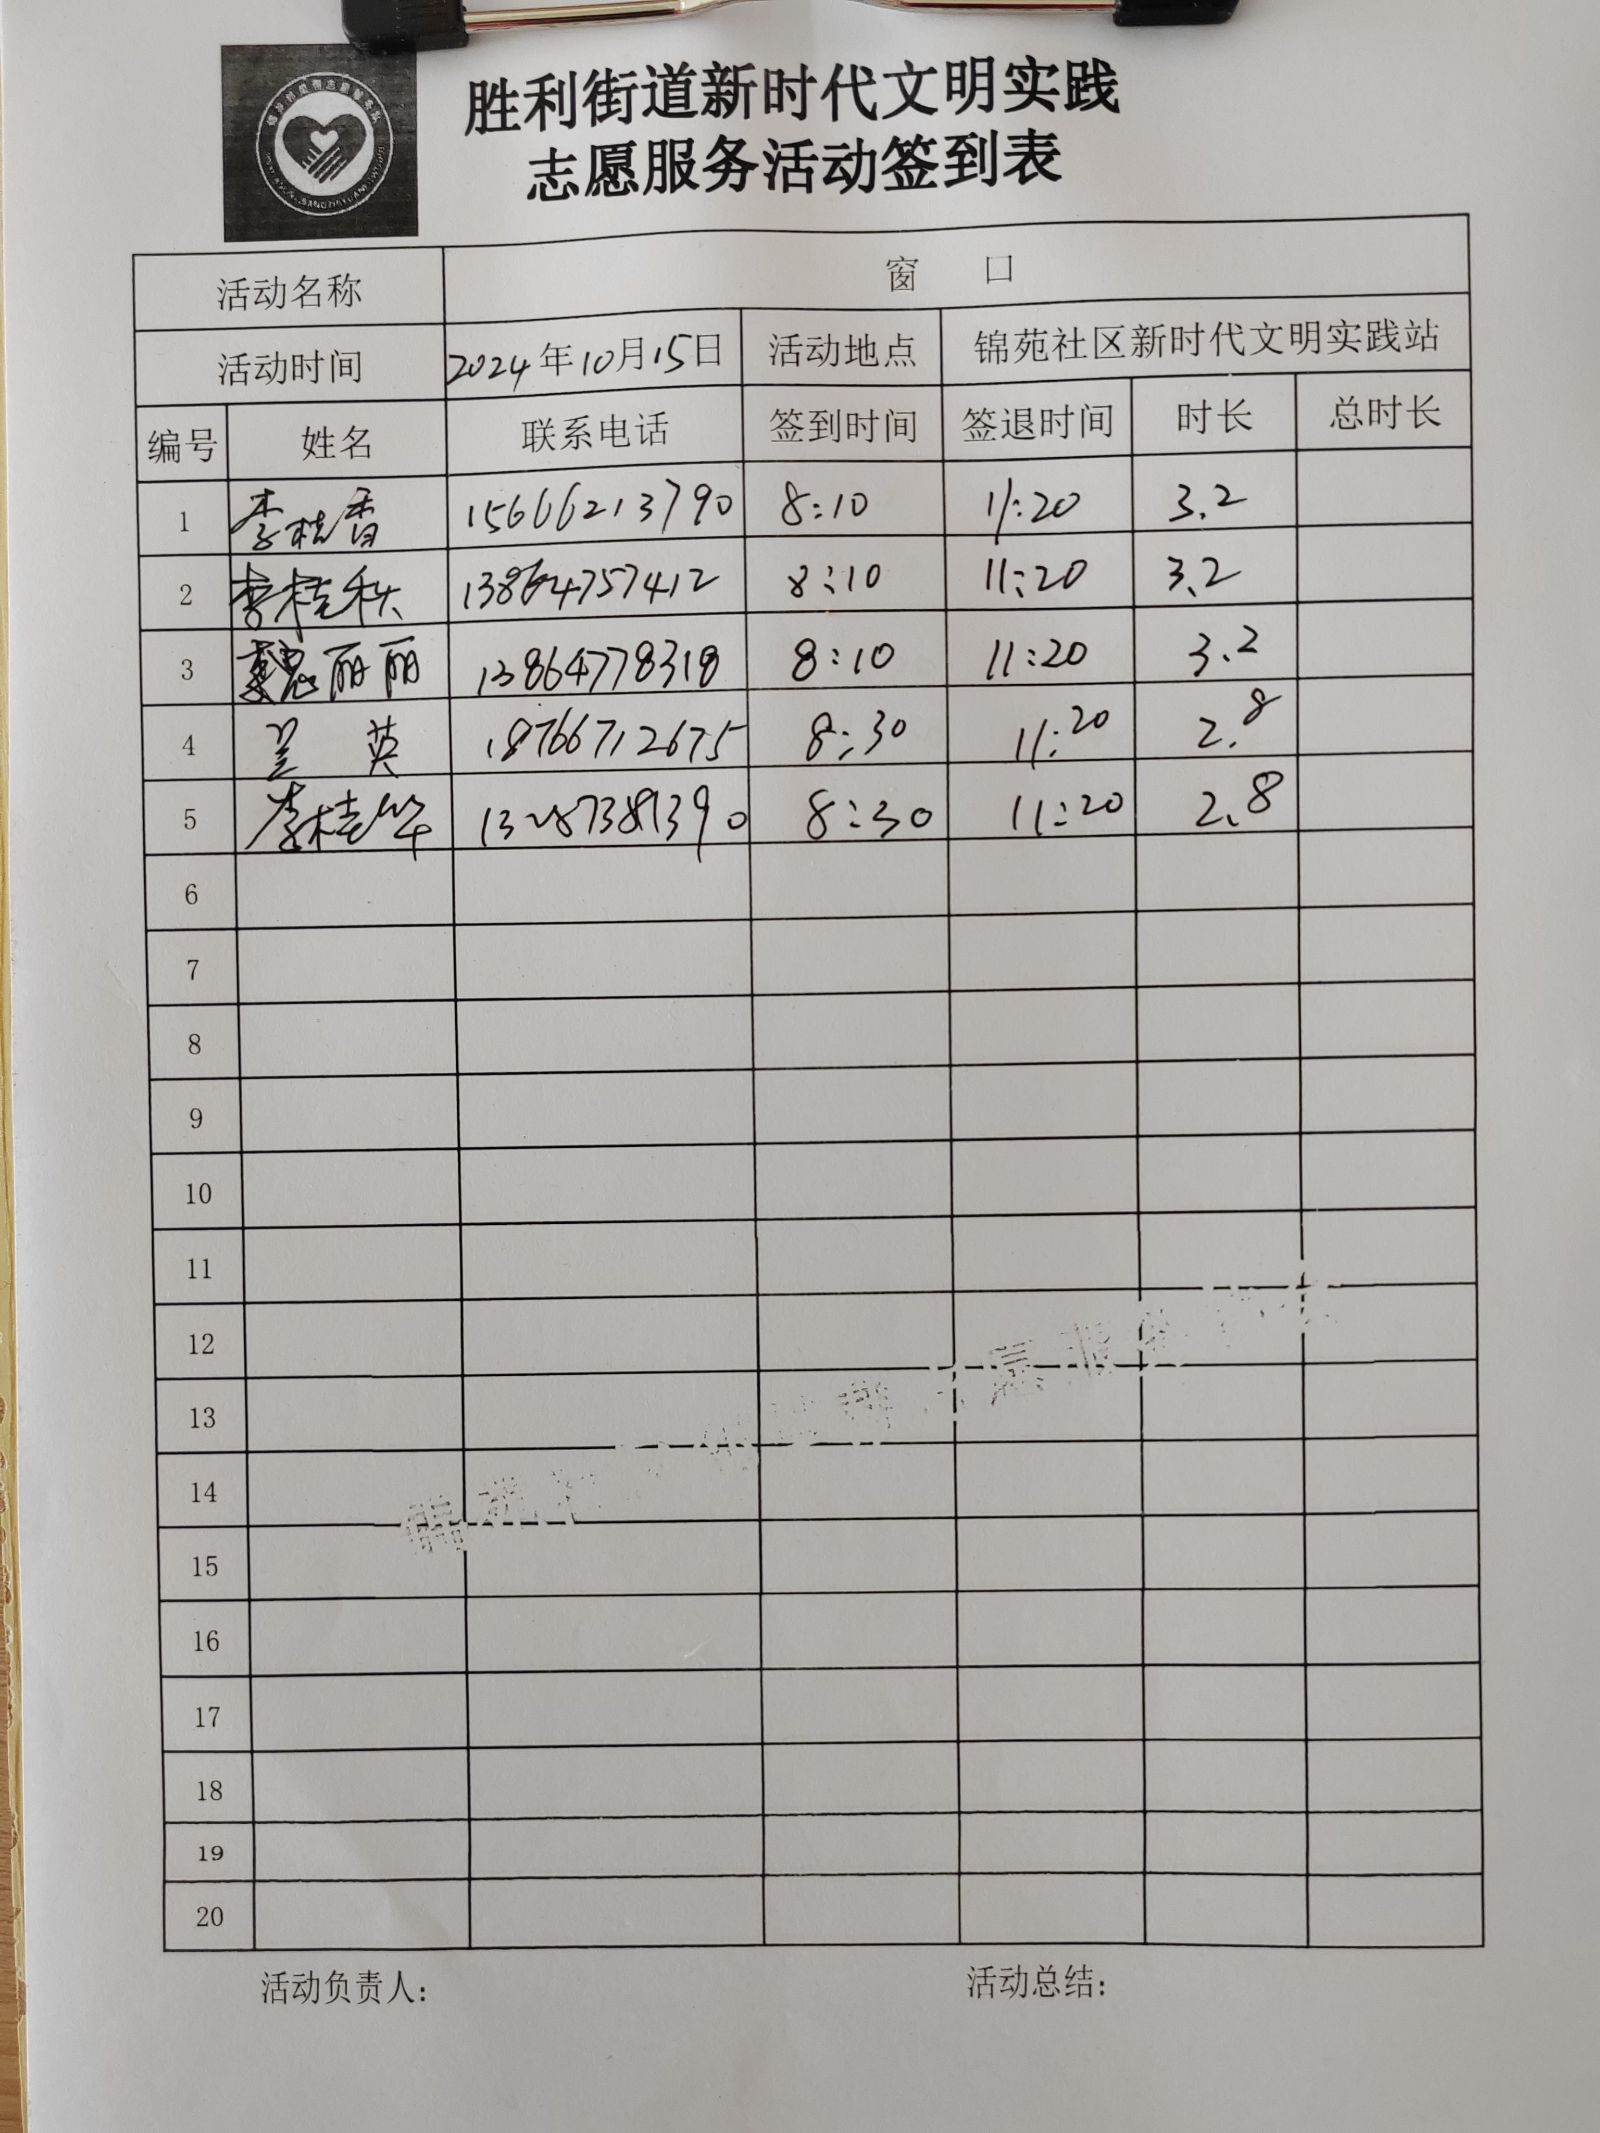 胜利街道新时代文明实践
志愿服务活动签到表
活动名称 窗 口
活动时间 2024年10月15日 活动地点 锦苑社区新时代文明实践站
编号 姓名 联系电话 签到时间 签退时间 时长 总时长
1 李桂香 15666213790 8:10 11:20 3.2
2 李桂秋 13864757412 8:10 11:20 3.2
3 魏丽丽 13864778318 8:10 11:20 3.2
4 兰 英 18766712675 8:30 11:20 2.8
5 李桂华 13287381390 8:30 11:20 2.8
6
7
8
9
10
11
12
13
14
15
16
17
18
19
20
活动负责人: 活动总结: